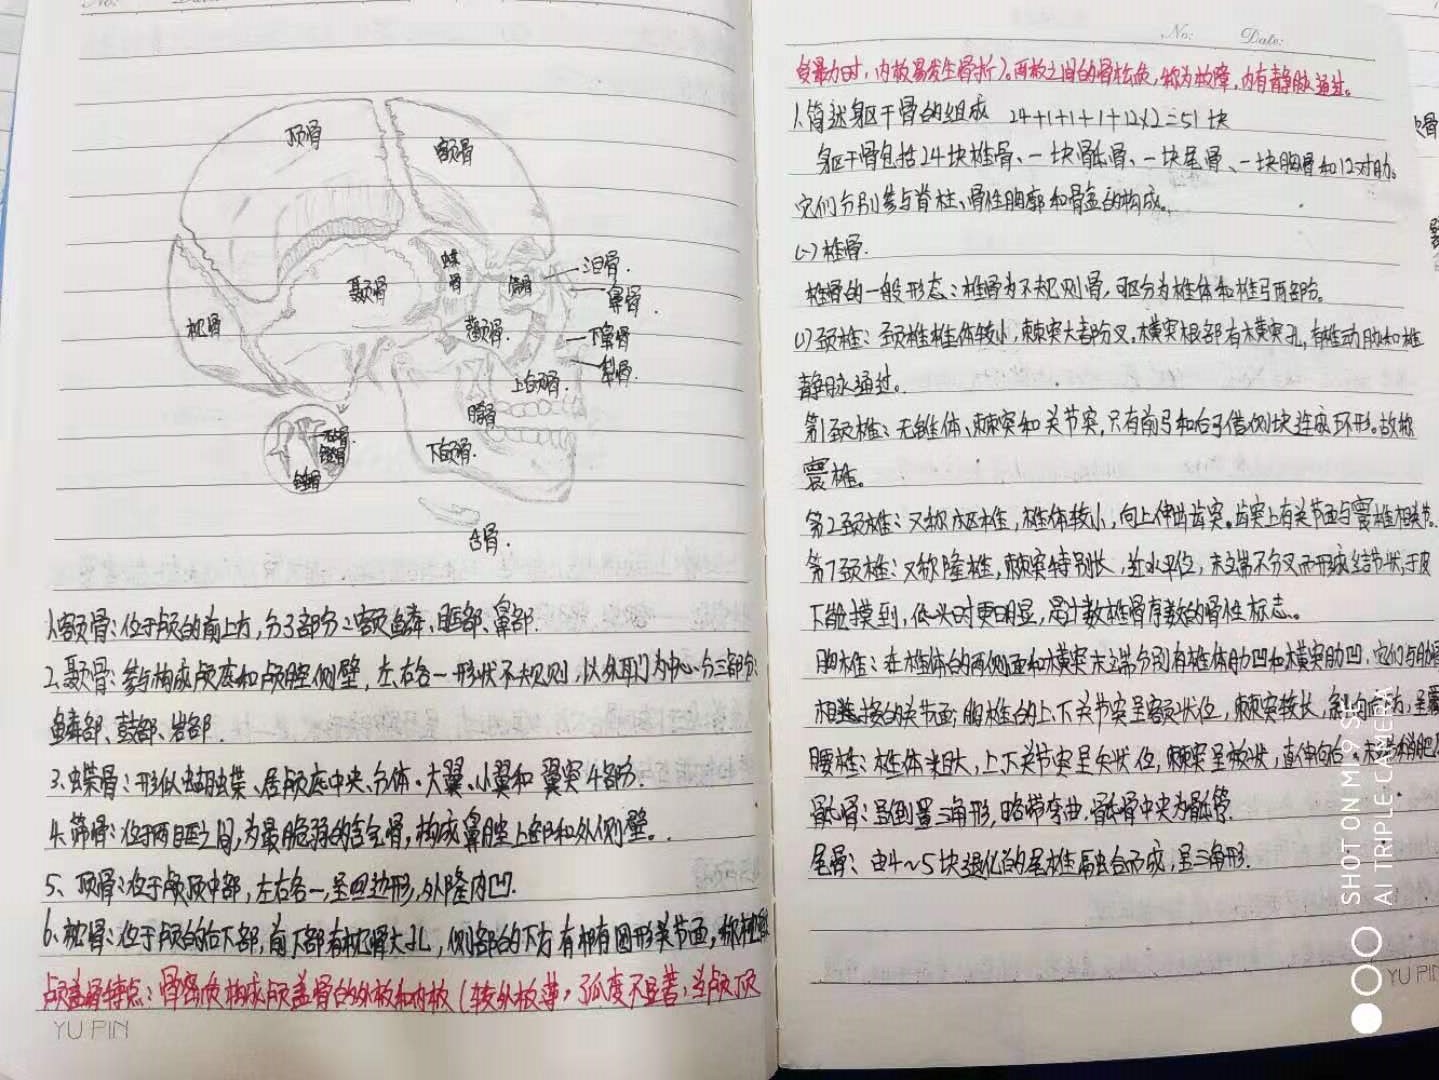 No:
顶骨
额骨
蝶骨
泪骨.
颞骨
筛骨
鼻骨.
枕骨
颧骨.
下鼻骨
犁骨.
上颌骨.
腭骨
下颌骨.
锤骨
舌骨.
1.额骨:位于颅的前上方,分3部分:额鳞、眶部、鼻部.
2.颞骨:参与构成颅底和颅腔侧壁,左、右各一形状不规则,以外耳门为中心分三部分:
鳞部、鼓部、岩部.
3、蝶骨:形似蝴蝶、居颅底中央、分体、大翼、小翼和翼突4部分.
4.筛骨:位于两眶之间,为最脆弱的含气骨,构成鼻腔上部和外侧壁。
5、顶骨:位于颅顶中部,左右各一,呈四边形,外隆内凹.
6、枕骨:位于颅的后下部,前下部有枕骨大孔,侧部的下方有椭圆形关节面,称枕
颅盖骨特点:骨密质构成颅盖骨的外板和内板(较外板薄,弧度不显著,当颅顶
YU PIN
No: Date:
受暴力时,内板易发生骨折)。两板之间的骨松质,称为板障,内有静脉通过。
1.简述躯干骨的组成 24+1+1+1+12×2=51块
躯干骨包括24块椎骨、一块骶骨、一块尾骨、一块胸骨和12对肋。
它们分别参与脊柱、骨性胸廓和骨盆的构成。
(一)椎骨.
椎骨的一般形态:椎骨为不规则骨,可区分为椎体和椎弓两部分。
(1)颈椎:颈椎椎体较小,棘突大部分叉。横突根部有横突孔,有椎动脉和椎
静脉通过。
第1颈椎:无椎体、棘突和关节突,只有前弓和后弓借侧块连成环形。故称
寰椎。
第2颈椎:又称枢椎,椎体较小,向上伸出齿突。齿突上有关节面与寰椎相关节。
第7颈椎:又称隆椎,棘突特别长,近水平位,末端不分叉而形成结节状,于皮
下能摸到,低头时更明显,是计数椎骨序数的骨性标志。
胸椎:在椎体的两侧面和横突末端分别有椎体肋凹和横突肋凹,它们与肋骨
相连接的关节面;胸椎的上、下关节突呈额状位,棘突较长,斜向后方,呈叠
腰椎:椎体粗大,上下关节突呈矢状位,棘突呈板状,直伸向后。末端稍肥
骶骨:呈倒置三角形,略带弯曲.骶骨中央为骶管.
尾骨:由4~5块退化的尾椎融合而成,呈三角形.
YU PIN
SHOT ON MI 9 SE
AI TRIPLE CAMERA